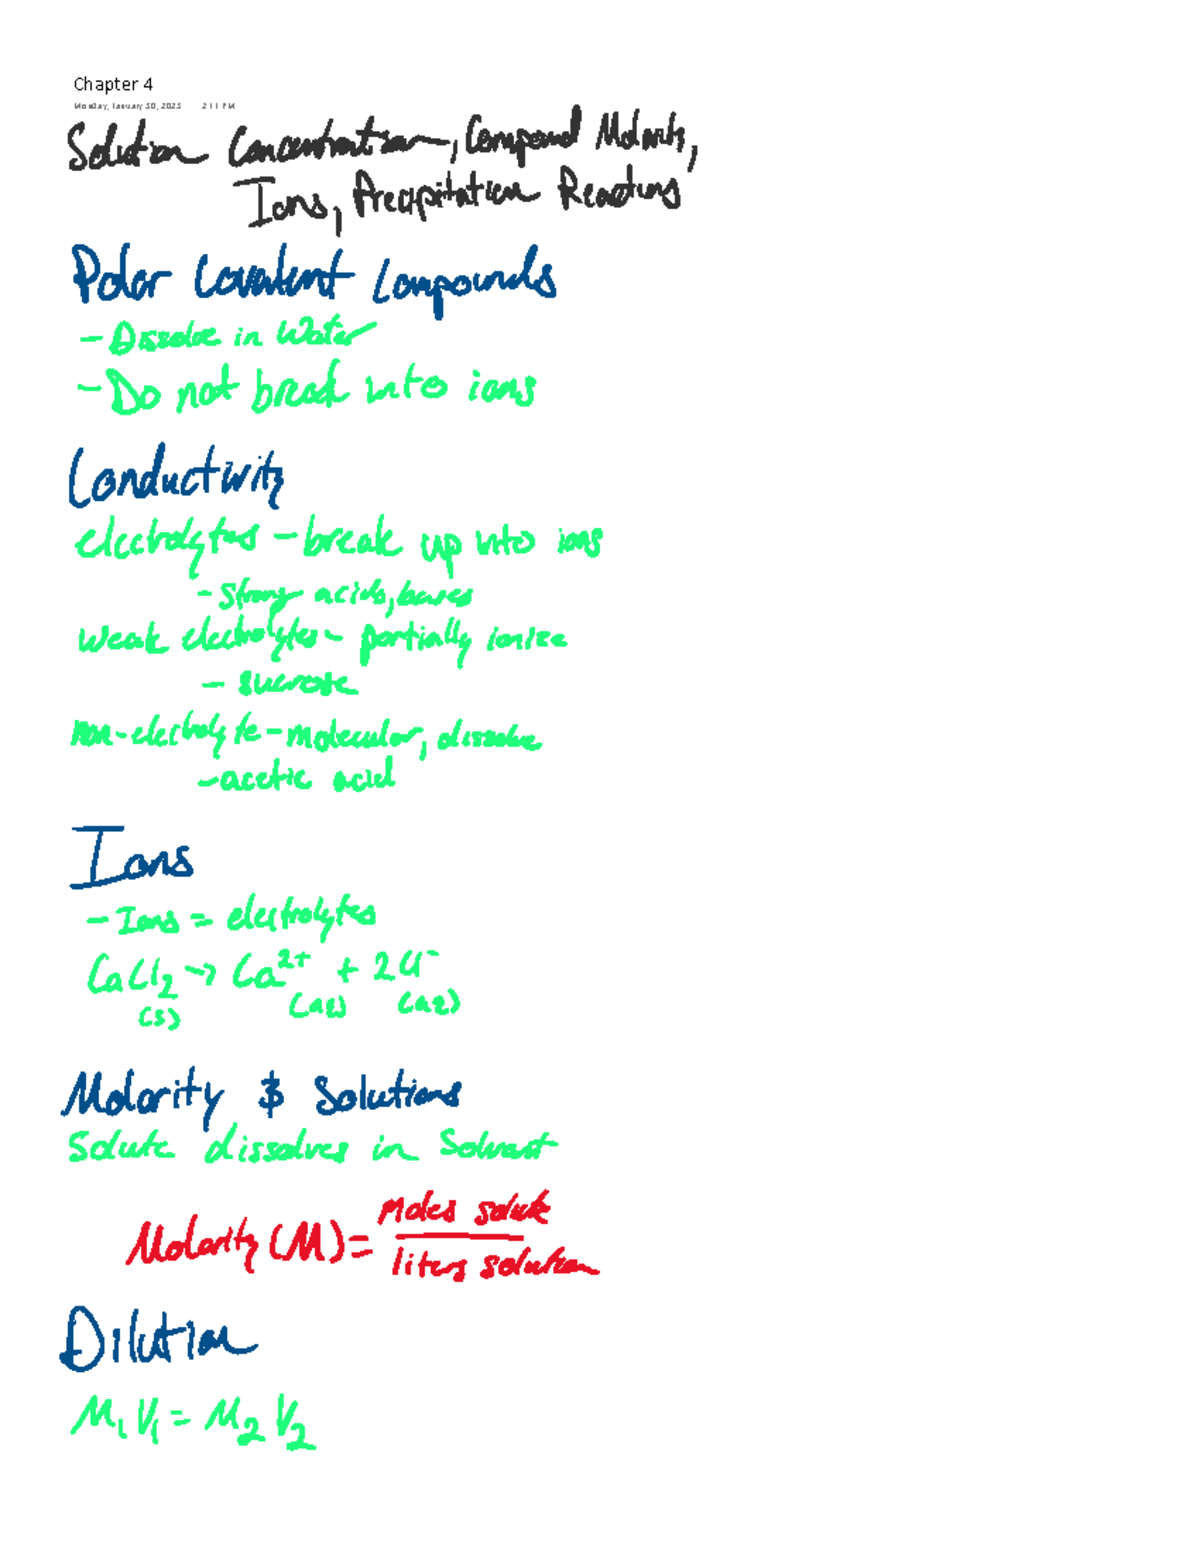 Chapter 4
Monday, January 30, 2023 2:11 PM
Solution Concentration, Compound Molarity,
Ions, Precipitation Reactions
Polar Covalent Compounds
- Dissolve in Water
- Do not break into ions
Conductivity
electrolytes - break up into ions
- strong acids, bases
weak electrolytes - partially ionize
- sucrose
non-electrolyte - molecular, dissolve
- acetic acid
Ions
- Ions = electrolytes
CaCl₂ → Ca²⁺ + 2Cl⁻
(s) (aq) (aq)
Molarity & Solutions
Solute dissolves in Solvent
Molarity (M) = moles solute
liters solution
Dilution
M₁V₁ = M₂V₂